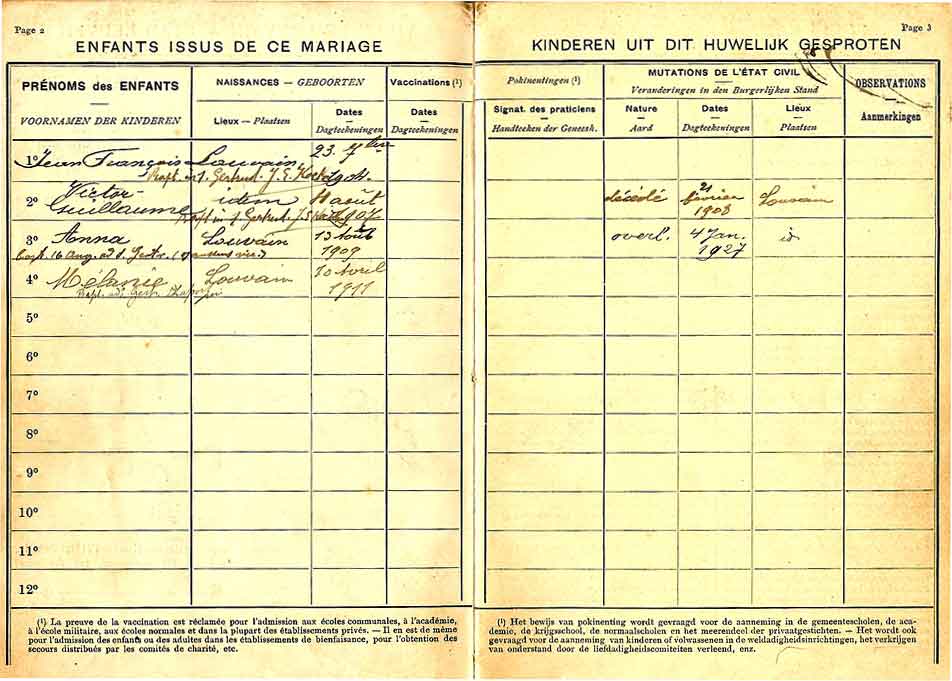 Page 2
ENFANTS ISSUS DE CE MARIAGE
PRÉNOMS des ENFANTS
VOORNAMEN DER KINDEREN
NAISSANCES — GEBOORTEN
Lieux — Plaatsen
Dates
Dagteekeningen
Vaccinations (1)
Dates
Dagteekeningen
1º Jean François Louvain 23. 7bre
Bapt. Gertrud. 1904.
2º Victor- idem 11 août
Guillaume Bapt in Gertrud. 1907
3º Anna Louvain 13 Août
bapt. 16 Aug. ad S. 1909
4º Mélanie Louvain 10 Avril
Bapt. ad 1911
5º
6º
7º
8º
9º
10º
11º
12º
(1) La preuve de la vaccination est réclamée pour l'admission aux écoles communales, à l'académie,
à l'école militaire, aux écoles normales et dans la plupart des établissements privés. — Il en est de même
pour l'admission des enfants ou des adultes dans les établissements de bienfaisance, pour l'obtention des
secours distribués par les comités de charité, etc.
Page 3
KINDEREN UIT DIT HUWELIJK GESPROTEN
Pokinentingen (1)
Signat. des praticiens
Handteeken der Geneesh.
MUTATIONS DE L'ÉTAT CIVIL
Veranderingen in den Burgerlijken Stand
Nature
Aard
Dates
Dagteekeningen
Lieux
Plaatsen
OBSERVATIONS
Aanmerkingen
décédé 21 février 1908 Louvain
overl. 4 Jan. 1927 id
(1) Het bewijs van pokinenting wordt gevraagd voor de aanneming in de gemeentescholen, de aca-
demie, de krijgsschool, de normaalscholen en het meerendeel der privaatgestichten. — Het wordt ook
gevraagd voor de aanneming van kinderen of volwassenen in de weldadigheidsinrichtingen, het verkrijgen
van onderstand door de liefdadigheidscomiteiten verleend, enz.